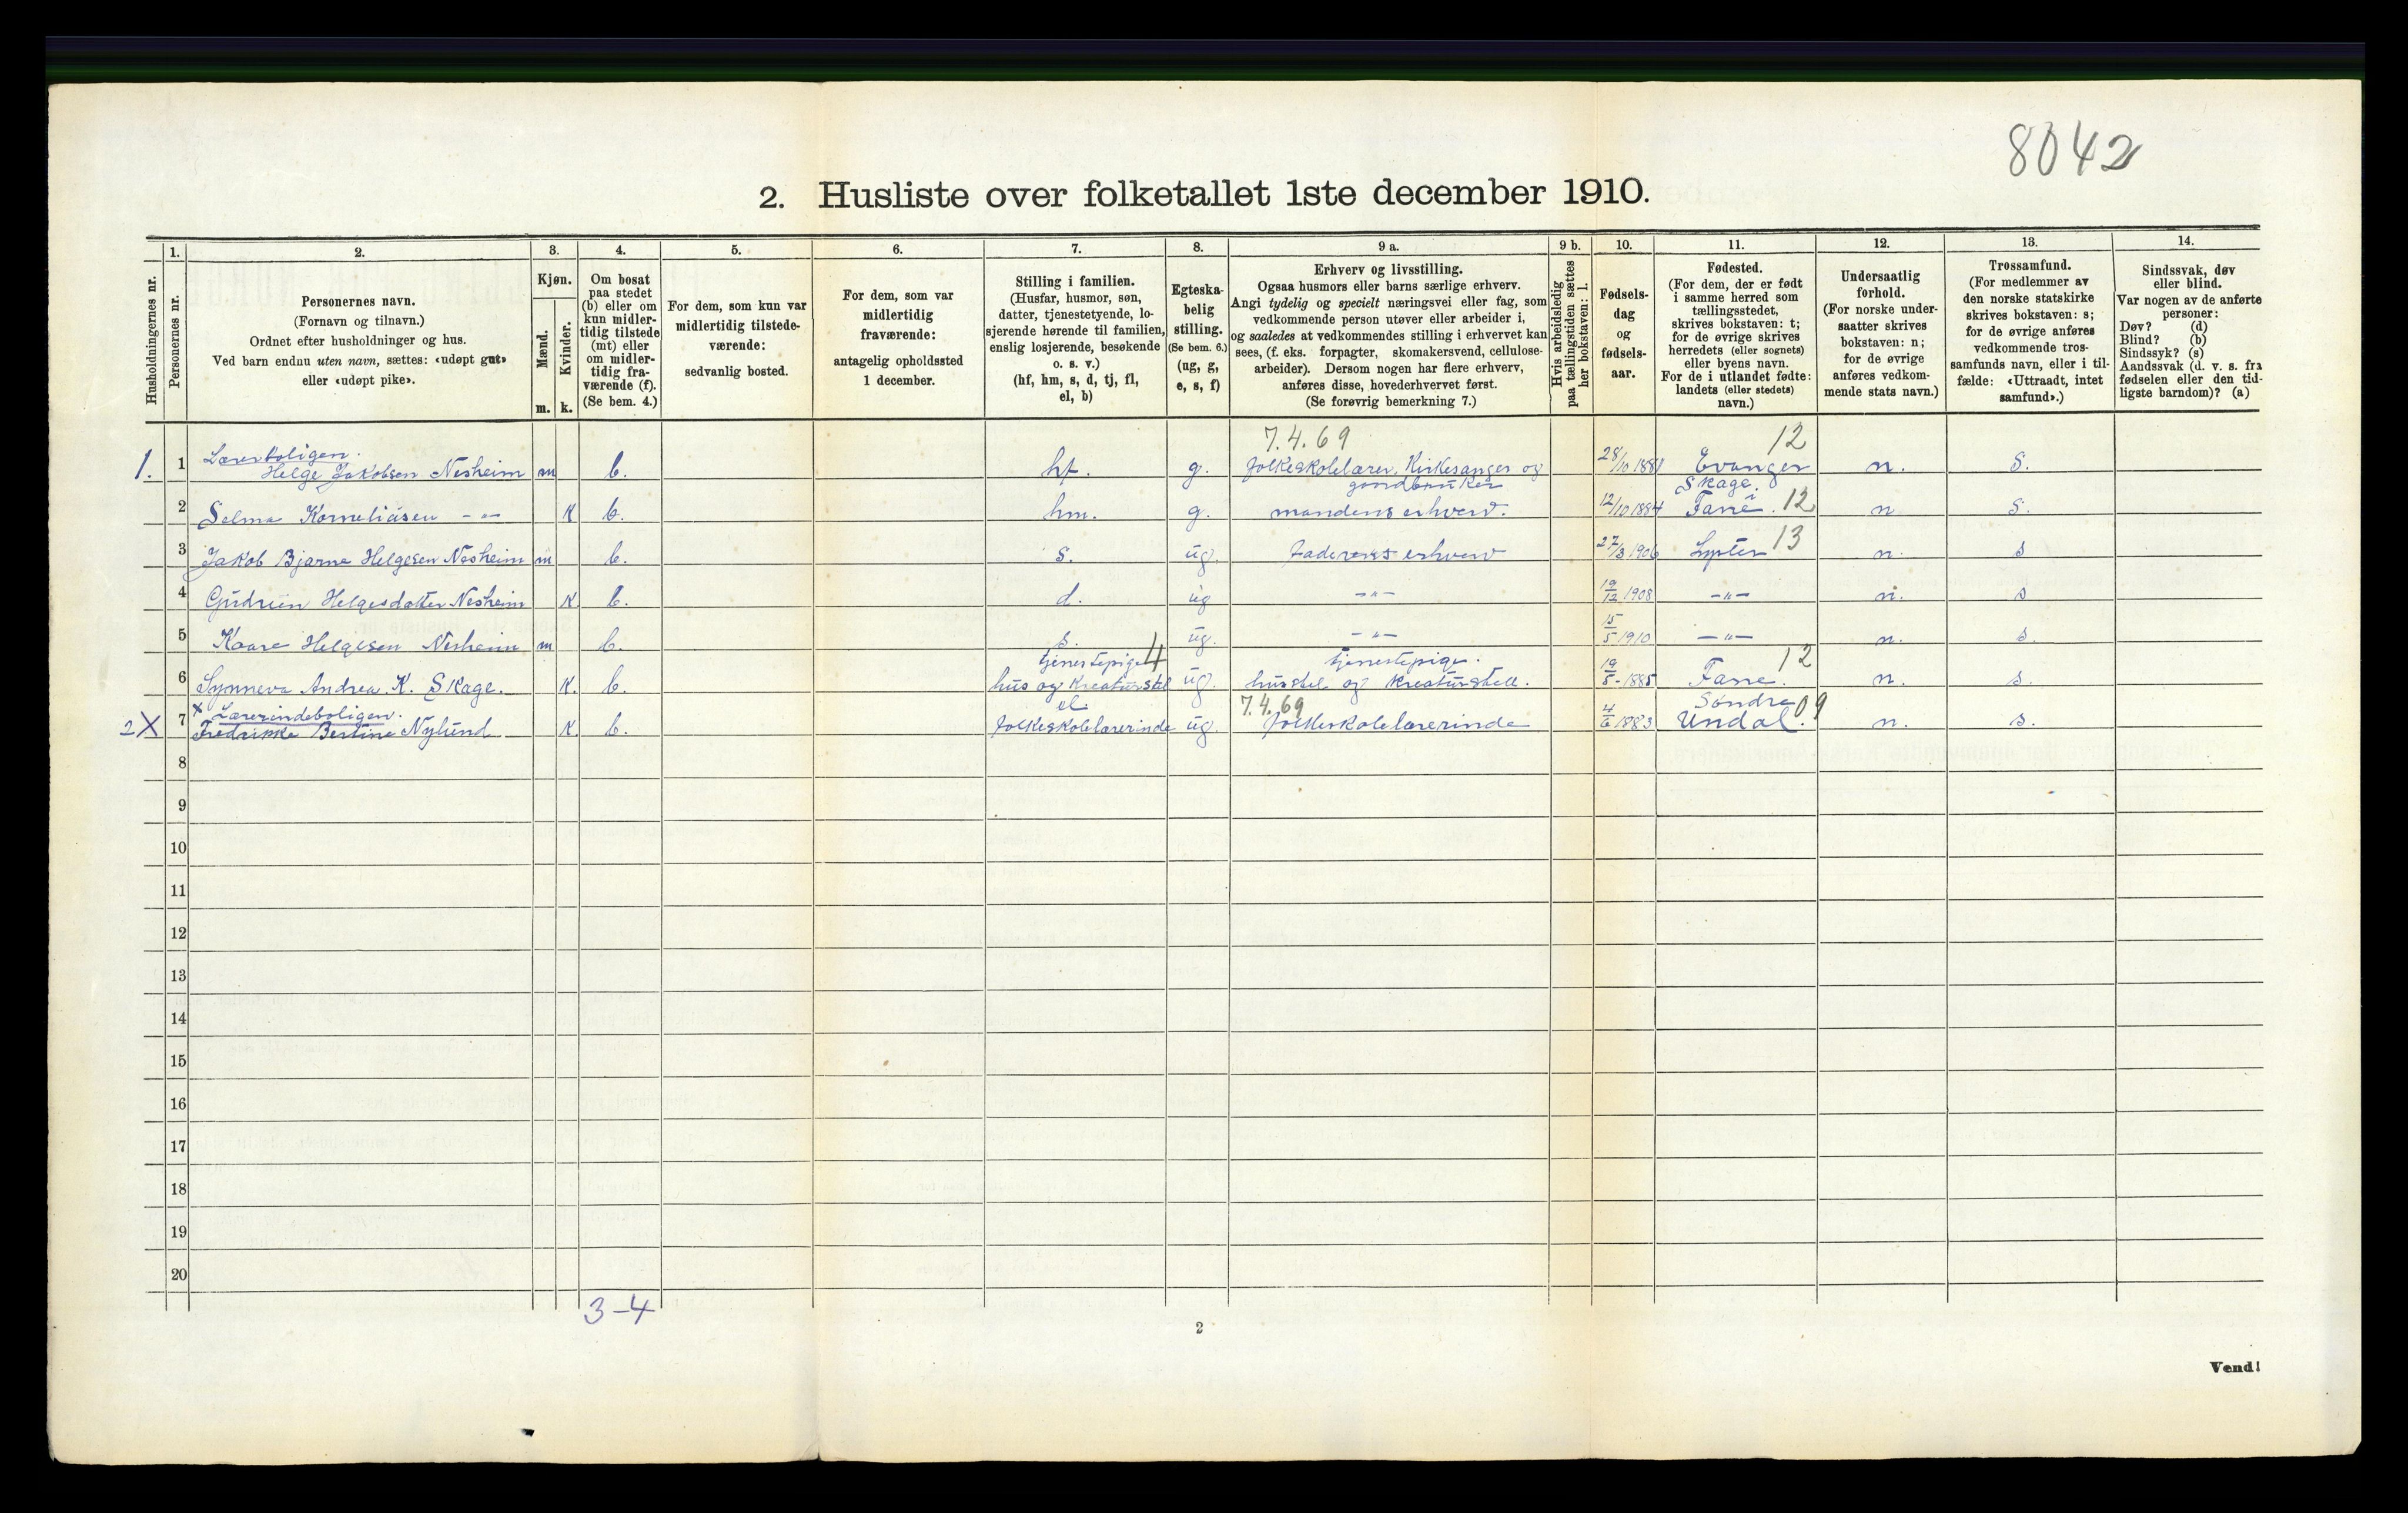 8042
2. Husliste over folketallet 1ste december 1910.
Husholdningernes nr.
1.
Personernes nr.
2.
Personernes navn.
(Fornavn og tilnavn.)
Ordnet efter husholdninger og hus.
Ved barn endnu uten navn, sættes: «udøpt gut»
eller «udøpt pike».
3.
Kjøn.
Mænd.
Kvinder.
m. k.
4.
Om bosat
paa stedet
(b) eller om
kun midler-
tidig tilstede
(mt) eller
om midler-
tidig fra-
værende (f).
(Se bem. 4.)
5.
For dem, som kun var
midlertidig tilstede-
værende:
sedvanlig bosted.
6.
For dem, som var
midlertidig
fraværende:
antagelig opholdssted
1 december.
7.
Stilling i familien.
(Husfar, husmor, søn,
datter, tjenestetyende, lo-
sjerende hørende til familien,
enslig losjerende, besøkende
o. s. v.)
(hf, hm, s, d, tj, fl,
el, b)
8.
Egteska-
belig
stilling.
(Se bem. 6.)
(ug, g,
e, s, f)
9 a.
Erhverv og livsstilling.
Ogsaa husmors eller barns særlige erhverv.
Angi tydelig og specielt næringsvei eller fag, som
vedkommende person utøver eller arbeider i,
og saaledes at vedkommendes stilling i erhvervet kan
sees, (f. eks. forpagter, skomakersvend, cellulose-
arbeider). Dersom nogen har flere erhverv,
anføres disse, hovederhvervet først.
(Se forøvrig bemerkning 7.)
9 b.
Hvis arbeidsledig
paa tællingstiden sættes
her bokstaven: l.
10.
Fødsels-
dag
og
fødsels-
aar.
11.
Fødested.
(For dem, der er født
i samme herred som
tællingsstedet,
skrives bokstaven: t;
for de øvrige skrives
herredets (eller sognets)
eller byens navn.
For de i utlandet fødte:
landets (eller stedets)
navn.)
12.
Undersaatlig
forhold.
(For norske under-
saatter skrives
bokstaven: n;
for de øvrige
anføres vedkom-
mende stats navn.)
13.
Trossamfund.
(For medlemmer av
den norske statskirke
skrives bokstaven: s;
for de øvrige anføres
vedkommende tros-
samfunds navn, eller i til-
fælde: «Uttraadt, intet
samfund».)
14.
Sindssvak, døv
eller blind.
Var nogen av de anførte
personer:
Døv? (d)
Blind? (b)
Sindssyk? (s)
Aandssvak (d. v. s. fra
fødselen eller den tid-
ligste barndom)? (a)
Lærerboligen. 7.4.69 12
1. 1 Helge Jakobsen Nesheim m b. hf. g. folkeskolelærer, Kirkesanger og 28/10 1881 Evanger n. s.
gaardbruker Skage.
2 Selma Korneliusen -"- k b. hm. g. mandens erhverv. 12/10 1884 Fane. 12 n s.
3 Jakob Bjarne Helgesen Nesheim m b. s. ug. Faderens erhverv 27/3 1906 Lyster 13 n. s
4 Gudrun Helgesdatter Nesheim k b. d. ug -"- 19/12 1908 -"- n. s
5 Kaare Helgesen Nesheim m b. s. ug. -"- 15/5 1910 -"- n. s.
tjenestepige 4 tjenestepige. 12
6 Synneva Andrea K. Skage. k. b. hus og kreaturstel ug. husstel og kreaturstell. 19/5 - 1885 Fane. n. s.
x Lærerindeboligen. el. 7.4.69 Søndre 09
2X 7 Fredrikke Bertine Nylund k. b. folkeskolelærerinde ug. folkeskolelærerinde 4/6 1883 Undal. n. s.
8
9
10
11
12
13
14
15
16
17
18
19
20
3-4
2
Vend!